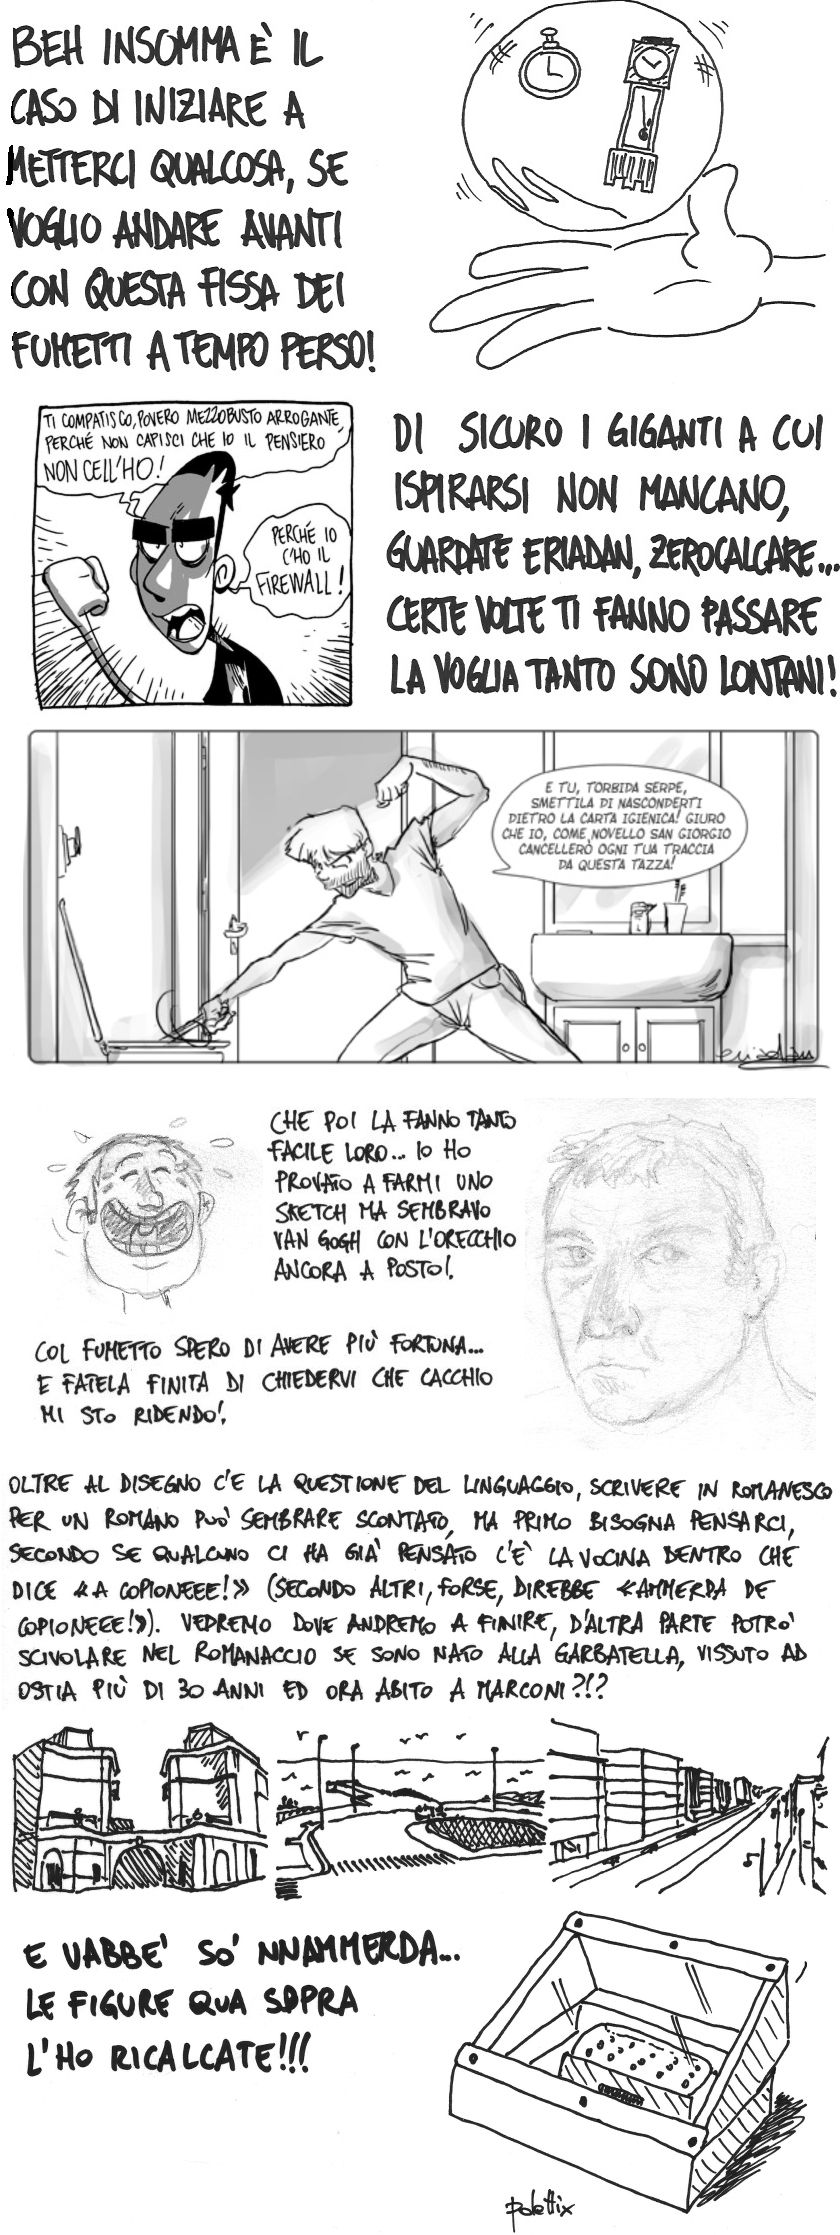 BEH INSOMMA È IL
CASO DI INIZIARE A
METTERCI QUALCOSA, SE
VOGLIO ANDARE AVANTI
CON QUESTA FISSA DEI
FUMETTI A TEMPO PERSO!
TI COMPATISCO, POVERO MEZZOBUSTO ARROGANTE,
PERCHÉ NON CAPISCI CHE IO IL PENSIERO
NON CELL'HO!
PERCHÉ IO
C'HO IL
FIREWALL!
DI SICURO I GIGANTI A CUI
ISPIRARSI NON MANCANO,
GUARDATE ERIADAN, ZEROCALCARE...
CERTE VOLTE TI FANNO PASSARE
LA VOGLIA TANTO SONO LONTANI!
E TU, TORBIDA SERPE,
SMETTILA DI NASCONDERTI
DIETRO LA CARTA IGIENICA! GIURO
CHE IO, COME NOVELLO SAN GIORGIO
CANCELLERÒ OGNI TUA TRACCIA
DA QUESTA TAZZA!
eriadan
CHE POI LA FANNO TANTO
FACILE LORO... IO HO
PROVATO A FARMI UNO
SKETCH MA SEMBRAVO
VAN GOGH CON L'ORECCHIO
ANCORA A POSTO!
COL FUMETTO SPERO DI AVERE PIÙ FORTUNA...
E FATELA FINITA DI CHIEDERVI CHE CACCHIO
MI STO RIDENDO!
OLTRE AL DISEGNO C'E LA QUESTIONE DEL LINGUAGGIO, SCRIVERE IN ROMANESCO
PER UN ROMANO PUO' SEMBRARE SCONTATO, MA PRIMO BISOGNA PENSARCI,
SECONDO SE QUALCUNO CI HA GIA' PENSATO C'E' LA VOCINA DENTRO CHE
DICE «A COPIONEEE!» (SECONDO ALTRI, FORSE, DIREBBE «AMMERDA DE
COPIONEEE!»). VEDREMO DOVE ANDREMO A FINIRE, D'ALTRA PARTE POTRO'
SCIVOLARE NEL ROMANACCIO SE SONO NATO ALLA GARBATELLA, VISSUTO AD
OSTIA PIÙ DI 30 ANNI ED ORA ABITO A MARCONI?!?
E VABBE' SO' NNAMMERDA...
LE FIGURE QUA SOPRA
L'HO RICALCATE!!!
polettix